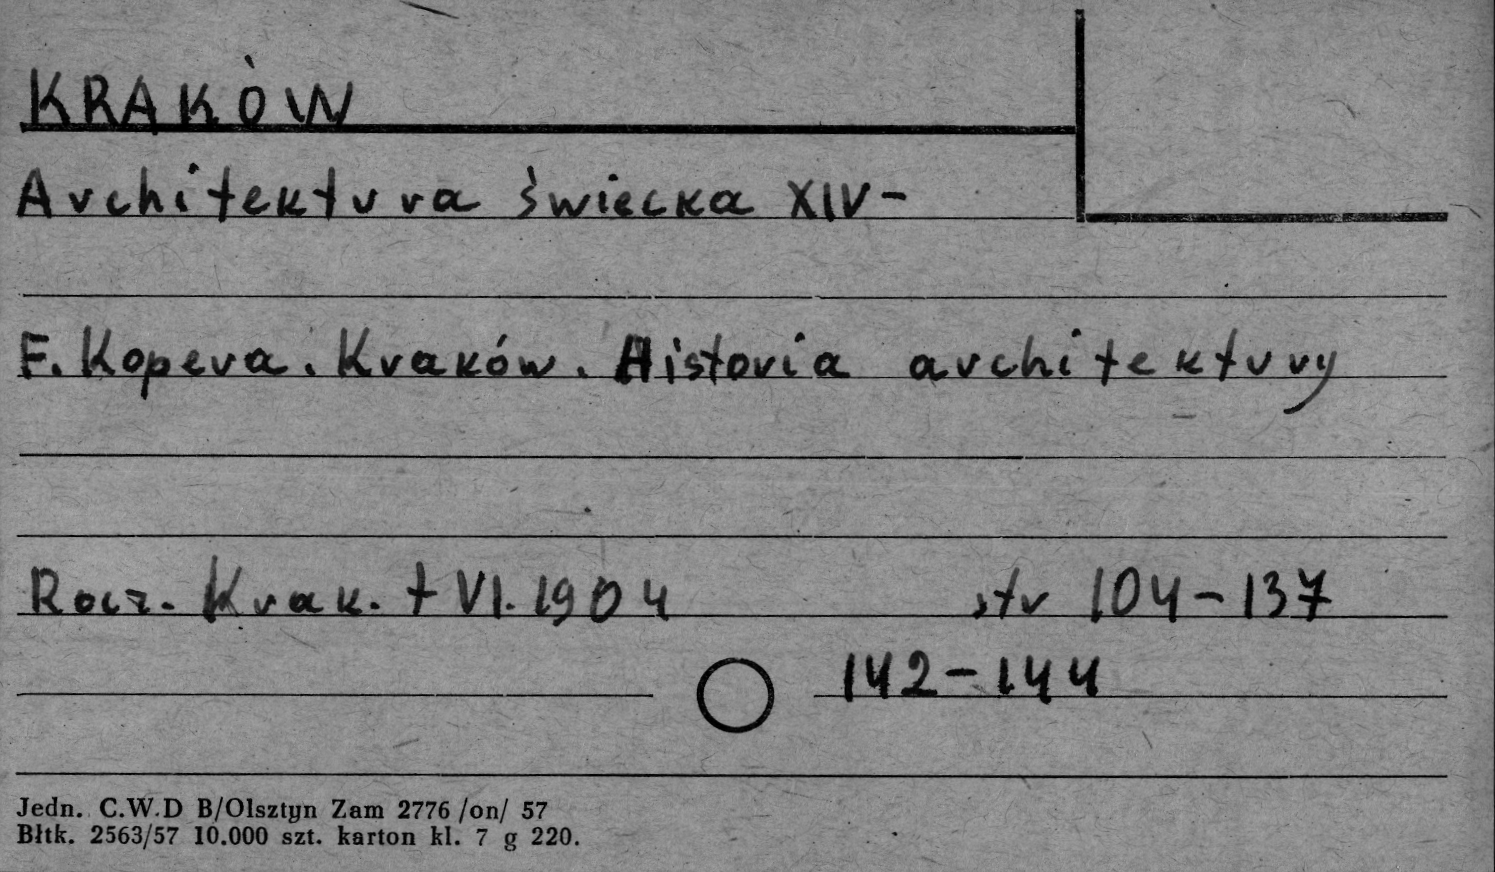 KRAKÓW
Architektura świecka XIV-
F. Kopera. Kraków. Historia architektury
Rocz. Krak. t VI. 1904 str 104-137
142-144
Jedn. C.W.D B/Olsztyn Zam 2776 /on/ 57
Błtk. 2563/57 10.000 szt. karton kl. 7 g 220.